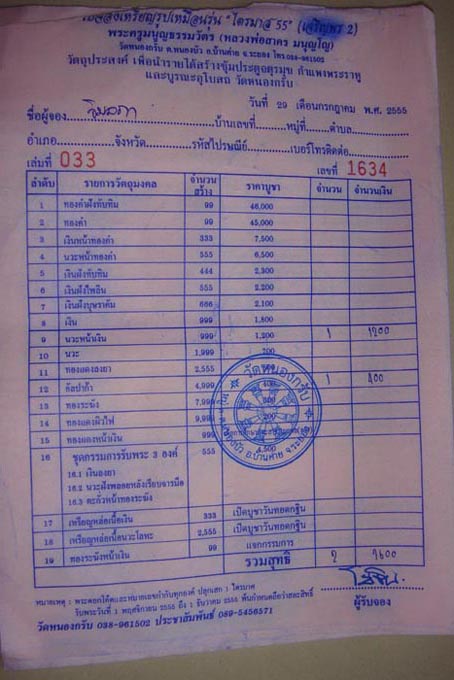 ใบสั่งเหรียญรูปเหมือนรุ่น "ไตรมาส 55" (เจริญพร 2)
พระครูมนูญธรรมวัตร (หลวงพ่อสาคร มนุญโญ)
วัดหนองกรับ ต.หนองบัว อ.บ้านค่าย จ.ระยอง โทร.038-961502
วัตถุประสงค์ เพื่อนำรายได้สร้างซุ้มประตูจตุรมุข กำแพงพระราหู
และบูรณะอุโบสถ วัดหนองกรับ
วันที่ 29 เดือนกรกฎาคม พ.ศ. 2555
ชื่อผู้จอง บ้านเลขที่ หมู่ที่ ตำบล
อำเภอ จังหวัด รหัสไปรษณีย์ เบอร์โทรติดต่อ
เล่มที่ 033 เลขที่ 1634
ลำดับ รายการวัตถุมงคล จำนวนสร้าง ราคาบูชา จำนวน จำนวนเงิน
1 ทองคำฝังทับทิม 99 46,000
2 ทองคำ 99 45,000
3 เงินหน้าทองคำ 333 7,500
4 นวะหน้าทองคำ 555 6,500
5 เงินฝังทับทิม 444 2,300
6 เงินฝังไพลิน 555 2,200
7 เงินฝังบุษราคัม 666 2,100
8 เงิน 999 1,800
9 นวะหน้าเงิน 999 1,200 1 1200
10 นวะ 1,999 700
11 ทองแดงลงยา 2,555
12 อัลปาก้า 4,999 1 400
13 ทองระฆัง 7,999
14 ทองแดงผิวไฟ 9,999 200
15 ทองแดงหน้าเงิน 999
16 ชุดกรรมการรับพระ 3 องค์ 555 4,500
16.1 เงินลงยา
16.2 นวะฝังพลอยหลังเรียบจารมือ
16.3 ตะกั่วหน้าทองระฆัง
17 เหรียญหล่อเนื้อเงิน 333 เปิดบูชาวันทอดกฐิน
18 เหรียญหล่อเนื้อนวะโลหะ 2,555 เปิดบูชาวันทอดกฐิน
19 ทองระฆังหน้าเงิน 99 แจกกรรมการ
รวมสุทธิ 2 1600
หมายเหตุ : พระตอกโค๊ตและหมายเลขกำกับทุกองค์ ปลุกเสก 1 ไตรมาส
รับพระวันที่ 1 พฤศจิกายน 2555 ถึง 1 ธันวาคม 2555 พ้นกำหนดถือว่าสละสิทธิ์
ผู้รับจอง
วัดหนองกรับ 038-961502 ประชาสัมพันธ์ 089-5456571
วัดหนองกรับ
ต.หนองบัว อ.บ้านค่าย จ.ระยอง